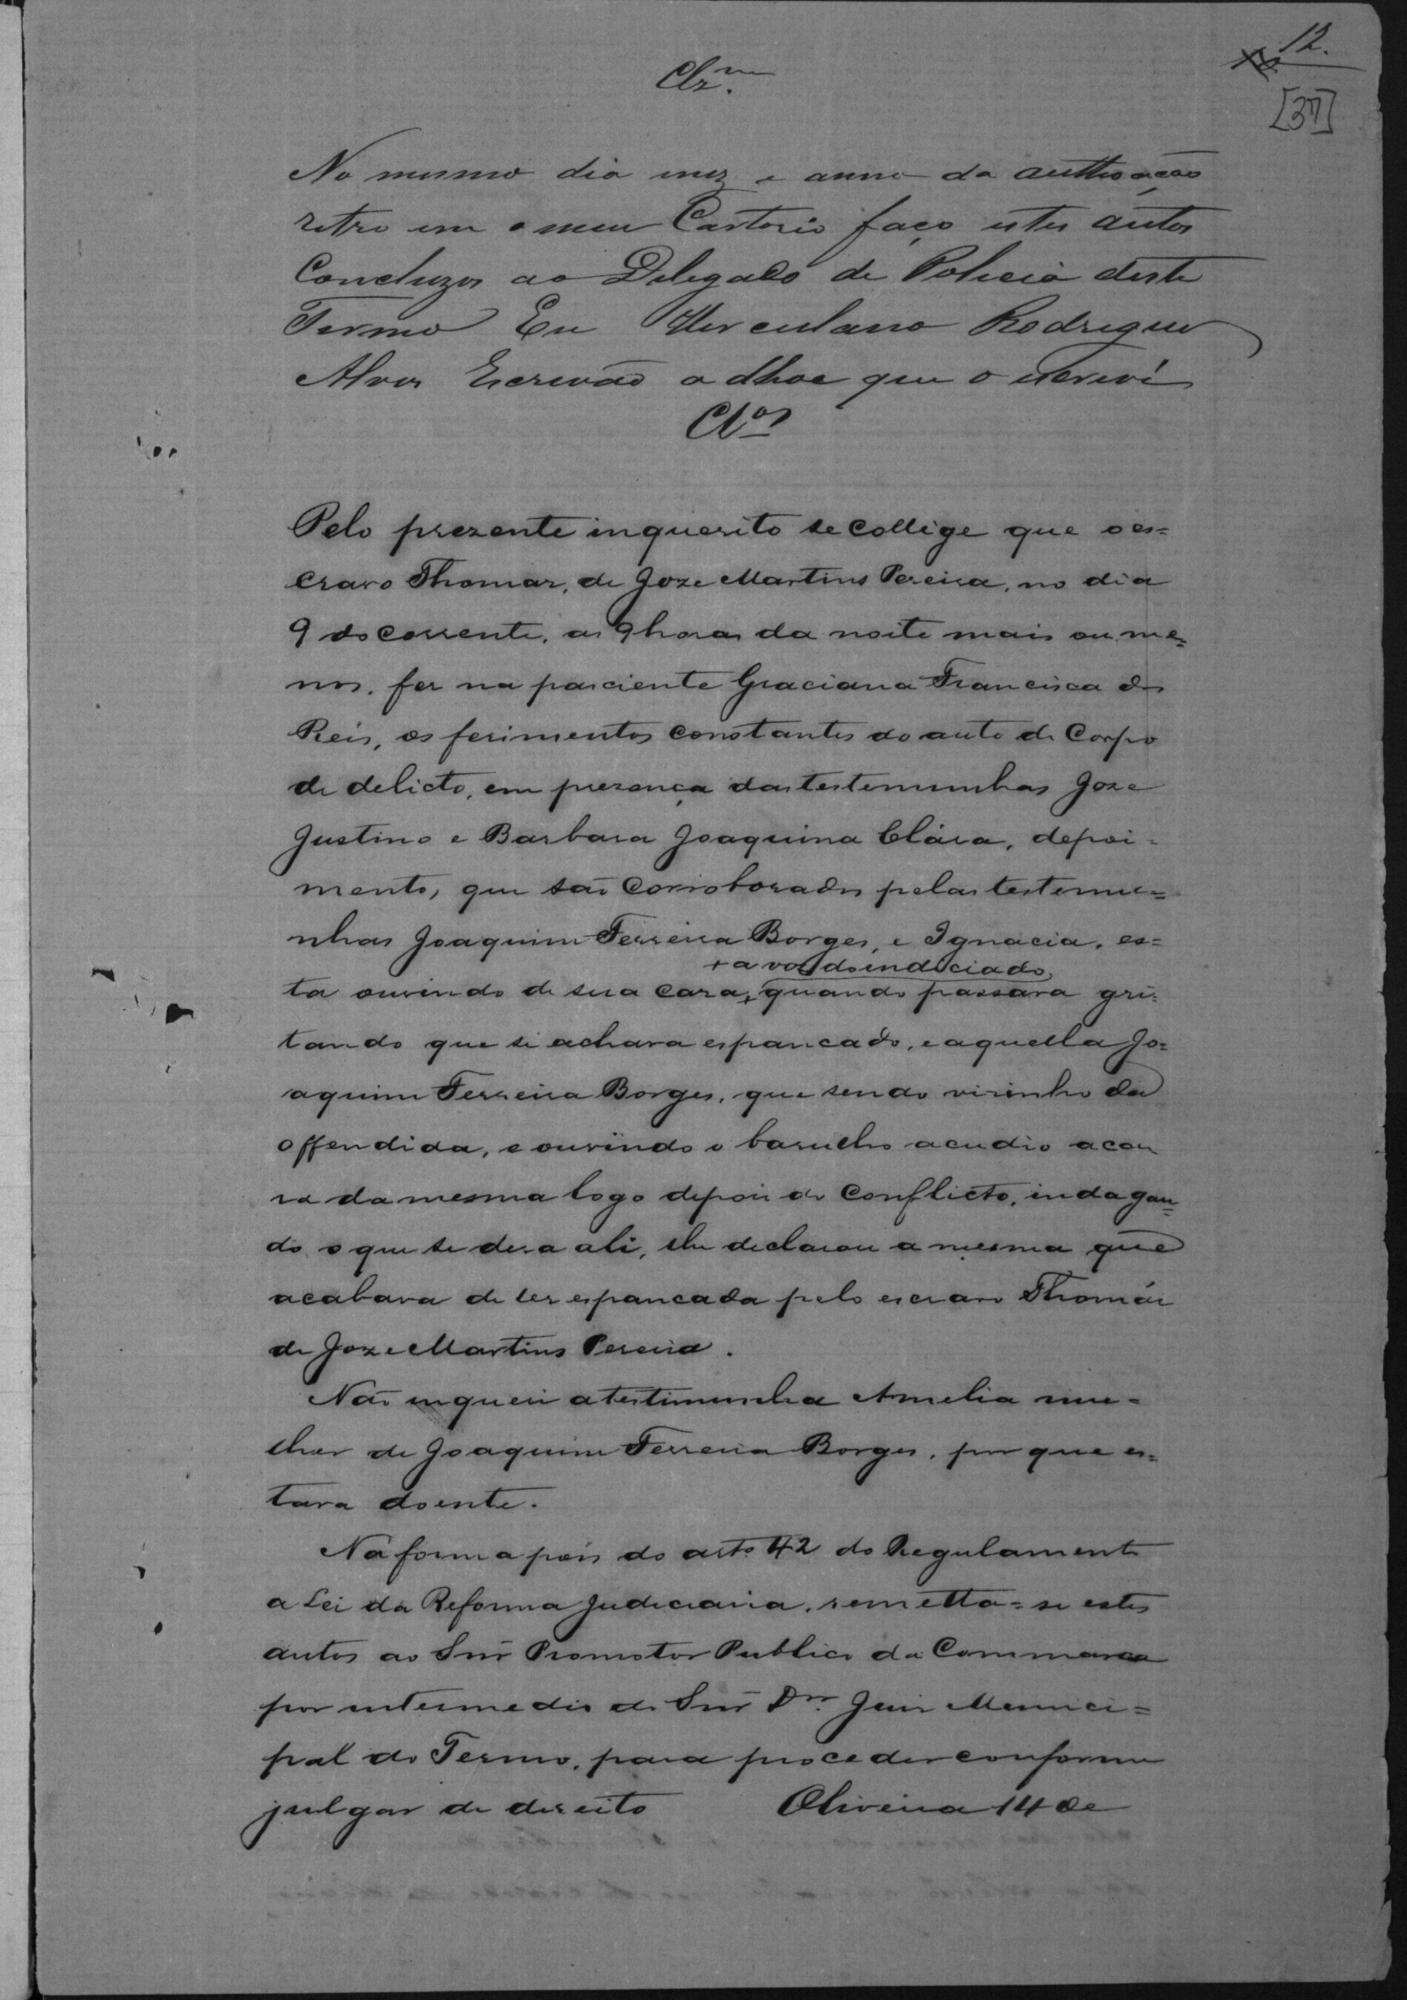 12.
[37]
Clz.m
No mesmo dia mez e anno da authoação
retro em o meu Cartorio faço estes autos
Concluzos ao Delegado de Policia deste
Termo Eu Herculano Rodrigues
Alves Escrivão adhoc que o escrevi
Clos
Pelo prezente inquerito se collige que o es=
cravo Thomas, de Joze Martins Pereira, no dia
9 do corrente, as 9 horas da noite mais ou me=
nos, fes na pasciente Graciana Francisca dos
Reis, os ferimentos constantes do auto de Corpo
de delicto, em prezença das testemunhas Joze
Justino e Barbara Joaquina Clára, depoi=
mentos, que são corroborados pelas testemu=
nhas Joaquim Ferreira Borges, e Ignacia, es=
+ a voz do indiciado,
ta ouvindo de sua caza, + quando passava gri=
tando que si achava espancado, e aquella Jo=
aquim Ferreira Borges, que sendo visinho da
offendida, e ouvindo o barulho acudio a caza
da mesma logo depois do conflicto, indagan=
do o que se dera ali, lhe declarou a mesma que
acabava de ser espancada pelo escravo Thomás
de Joze Martins Pereira.
Não inqueri a testimunha Amelia mu=
lher de Joaquim Ferreira Borges, por que es=
tava doente.
Na forma pois do arto 42 do Regulamento
a Lei da Reforma Judiciaria, remetta=se estes
autos ao Snr Promotor Publico da Commarca
por intermedio do Snr Dr. Juis Munici=
pal do Termo, para proceder conforme
julgar de direito Oliveira 14 de